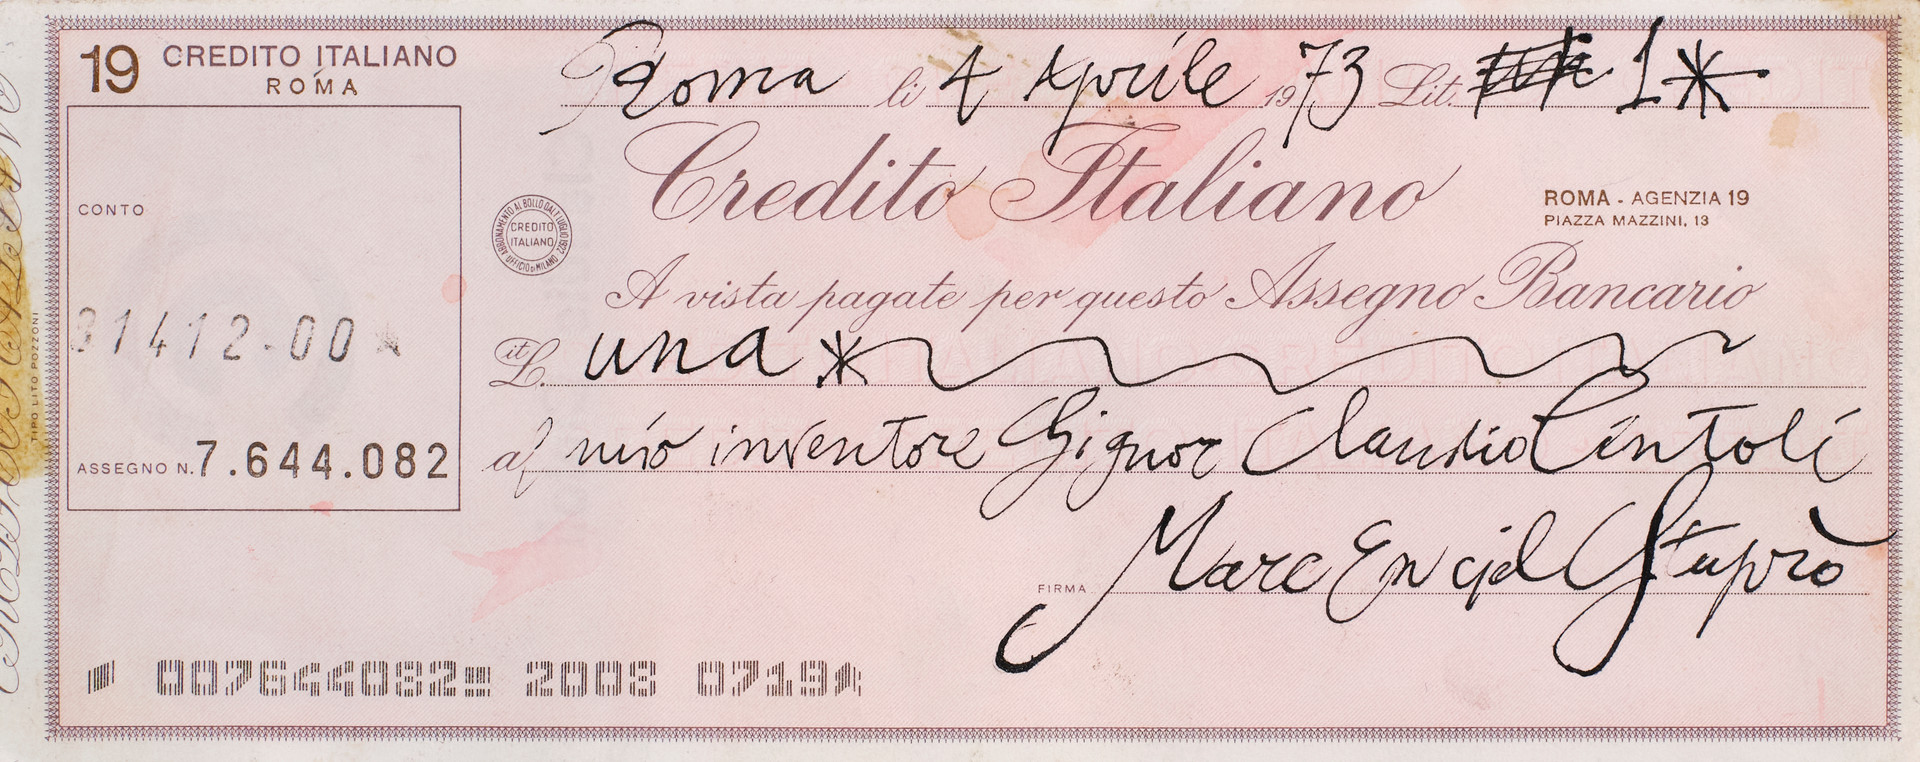 19 CREDITO ITALIANO
ROMA
Roma li 4 Aprile 1973 Lit. 1*
Credito Italiano
ROMA - AGENZIA 19
PIAZZA MAZZINI, 13
CONTO
ABBONAMENTO AL BOLLO DAL 1° LUGLIO 1972 UFFICIO DI MILANO
CREDITO
ITALIANO
A vista pagate per questo Assegno Bancario
31412-00*
it L. una *
al mio inventore Signor Claudio Cintoli
ASSEGNO N. 7.644.082
FIRMA Marcencjel Stuprò
TIPO LITO POZZONI
007644082 2008 0719